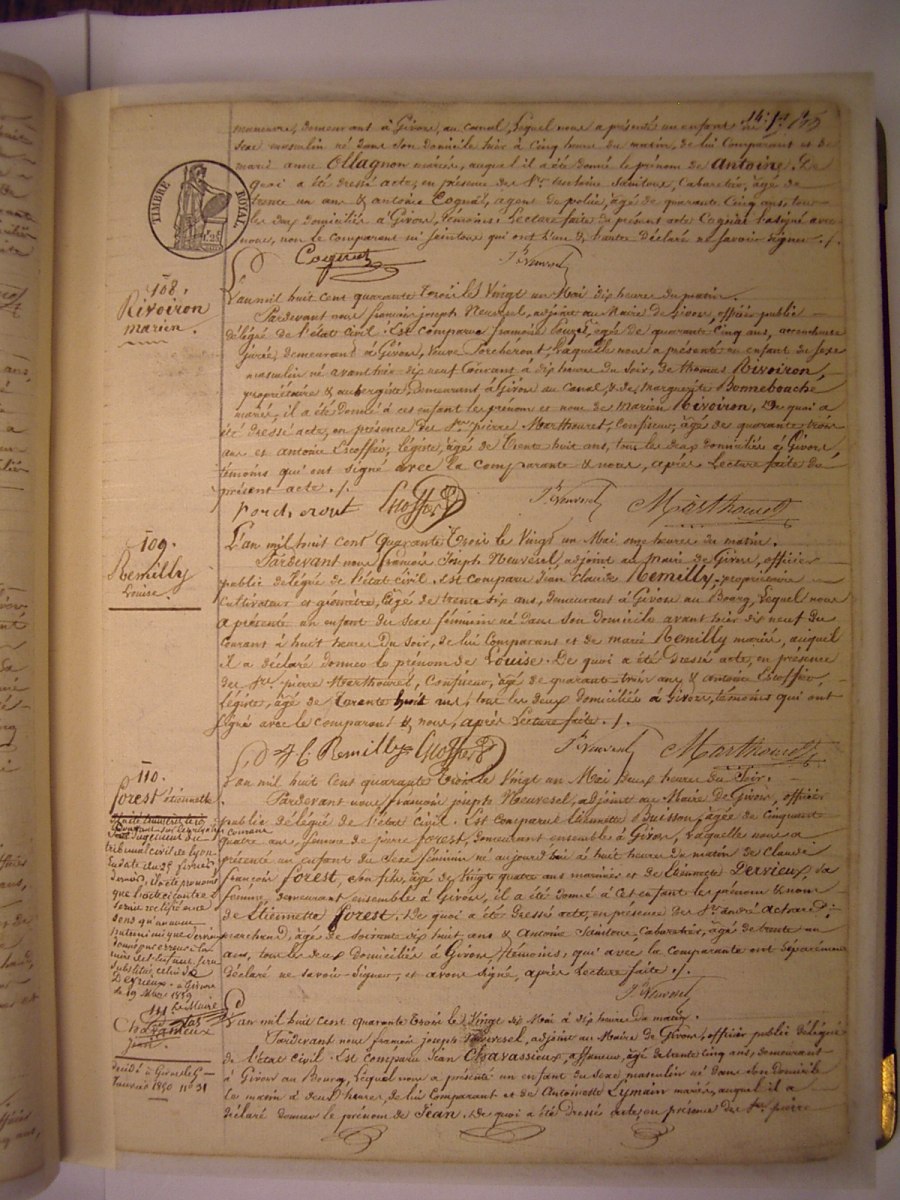 manœuvre, demeurant à Givors, au canal, lequel nous a présenté un enfant de
sexe masculin né dans son domicile hier à cinq heure du matin, de lui comparant et de
marie anne Ollagnon mariés, auquel il a été donné le prénom de Antoine. De
quoi a été dressé acte, en présence des Srs antoine Saintoux, Cabaretier, âgé de
trente un ans & antoine Cognat, agent de police, âgé de quarante Cinq ans, tous
les deux domiciliés à Givors, témoins. Lecture faite du présent acte Cognat l'a signé avec
nous, non le comparant ni Saintoux qui ont d'une & l'autre déclaré ne savoir signer ./.
TIMBRE ROYAL
Cognat
108.
Rivoiron
marien.
L'an mil huit cent quarante trois le Vingt un Mai dix heures du matin.
Pardevant nous françois joseph Neuvesel, adjoint au Maire de Givors, officier public
délégué de l'état civil. Est comparue françoise, âgée de quarante cinq ans, accoucheuse
jurée, demeurant à Givors, Veuve Porcheront, Laquelle nous a présenté un enfant du sexe
masculin né avant hier dix neuf courant à dix heure du soir, de thomas Rivoiron,
propriétaire & aubergiste, demeurant à Givors au Canal, & de Marguerite Bonnebouche
mariés, il a été donné à cet enfant les prénom et nom de Marien Rivoiron. De quoi a
été dressé acte, en présence des Srs pierre Marthouret, Confiseur, âgé de quarante trois
ans et antoine Escoffier, légiste, âgé de trente huit ans, tous les deux domiciliés à Givors,
témoins qui ont signé avec la comparante & nous, après Lecture faite du
présent acte ./.
Escoffier
Marthouret
109.
Remilly
Louise
L'an mil huit cent quarante trois le Vingt un Mai onze heures du matin.
Pardevant nous françois Joseph Neuvesel, adjoint au Maire de Givors, officier
public délégué de l'état civil. Est comparu Jean Claude Remilly, propriétaire
cultivateur et géomètre, âgé de trente six ans, demeurant à Givors au Bourg, Lequel nous
a présenté un enfant du sexe féminin né dans son domicile avant hier dix neuf du
courant à huit heure du soir, de lui comparant et de marie Remilly mariés, auquel
il a déclaré donner le prénom de Louise. De quoi a été dressé acte, en présence
des Srs pierre Marthouret, Confiseur, âgé de quarante trois ans & antoine Escoffier,
légiste, âgé de trente huit ans, tous les deux domiciliés à Givors, témoins qui ont
signé avec le comparant & nous, après Lecture faite ./.
Remilly Escoffier Marthouret
110.
forest étiennette
L'an mil huit cent quarante trois le Vingt un Mai deux heures du soir.
Pardevant nous françois joseph Neuvesel, adjoint au Maire de Givors, officier
public délégué de l'état civil. Est comparue Etiennette Buisson, âgée de cinquante
quatre ans, femme de pierre forest, demeurant ensemble à Givors, Laquelle nous a
présenté un enfant du sexe féminin né aujourd'hui à huit heure du matin de Claude
françois forest, son fils, âgé de vingt quatre ans marinier et de Etiennette Dervieux, sa
femme, demeurant ensemble à Givors, il a été donné à cet enfant les prénom & nom
de Etiennette forest. De quoi a été dressé acte, en présence des Srs andré Achard,
marchand, âgé de soixante dix huit ans & Antoine Saintoux, Cabaretier, âgé de trente un
ans, tous les deux domiciliés à Givors, témoins, qui avec la comparante ont séparément
déclaré ne savoir signer, et avons signé, après Lecture faite ./.
jugement du
tribunal civil de Lyon
en date du 25 février
dernier, il a été prononcé
que l'acte ci contre
serait rectifié en ce
sens qu'au nom
donné par erreur à la
mère de l'enfant sera
substitué celui de
DERVIEUX. à Givors
le 19 Mars 1859
Le Maire
111
Chavassieux
Jean.
L'an mil huit cent quarante trois le Vingt deux Mai à dix heure du matin.
Pardevant nous françois joseph Neuvesel, adjoint au Maire de Givors, officier public délégué
de l'état civil. Est comparu Jean Chavassieux, affaneur, âgé de trente cinq ans, demeurant
à Givors au Bourg, Lequel nous a présenté un enfant du sexe masculin né dans son domicile
le matin à deux heures, de lui comparant et de Antoinette Lymain mariés, auquel il a
déclaré donner le prénom de Jean. De quoi a été dressé acte, en présence des Srs pierre
Décédé à Givors le
Janvier 1850 n° 31